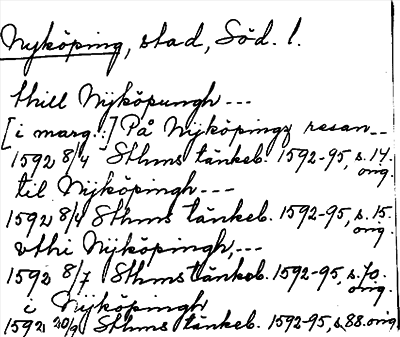 Nyköping, stad, Söd. l.
thill Nyköpungh ---
[i marg.:] På Nyköpings resan --
1592 8/4 Sthms tänkeb. 1592-95, s. 14.
orig.
til Nyköpingh ---
1592 8/4 Sthms tänkeb. 1592-95, s. 15.
orig.
vthi Nyköpingh, ---
1592 8/7 Sthms tänkeb. 1592-95, s. 70.
orig.
i Nyköpingh
1592 20/9 Sthms tänkeb. 1592-95, s. 88. orig.